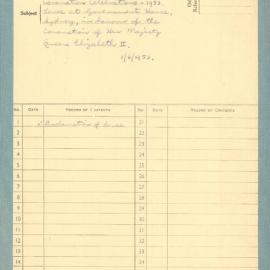 Coronation Celebrations - 1953.
Subject
at Government House,
Sydney, in honour of the
Coronation of Her Majesty
Queen Elizabeth II.
1/6/1953.
No. DATE RECORD OF CONTENTS No. DATE RECORD OF CONTENTS
1 21
2 22
3 23
4 24
5 25
6 26
7 27
8 28
9 29
10 30
11 31
12 32
13 33
14 34